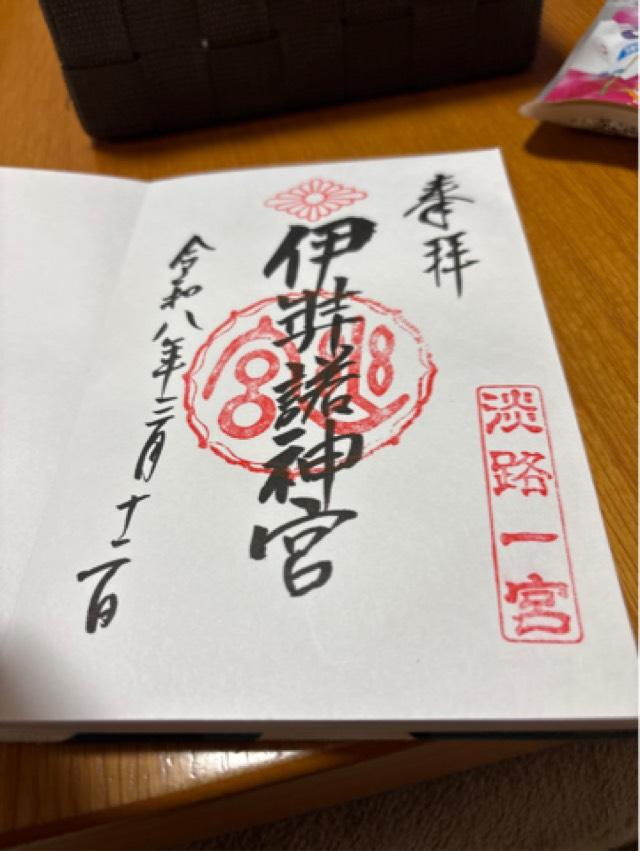 奉拝
淡路一宮
伊弉諾神宮
令和八年三月十二日